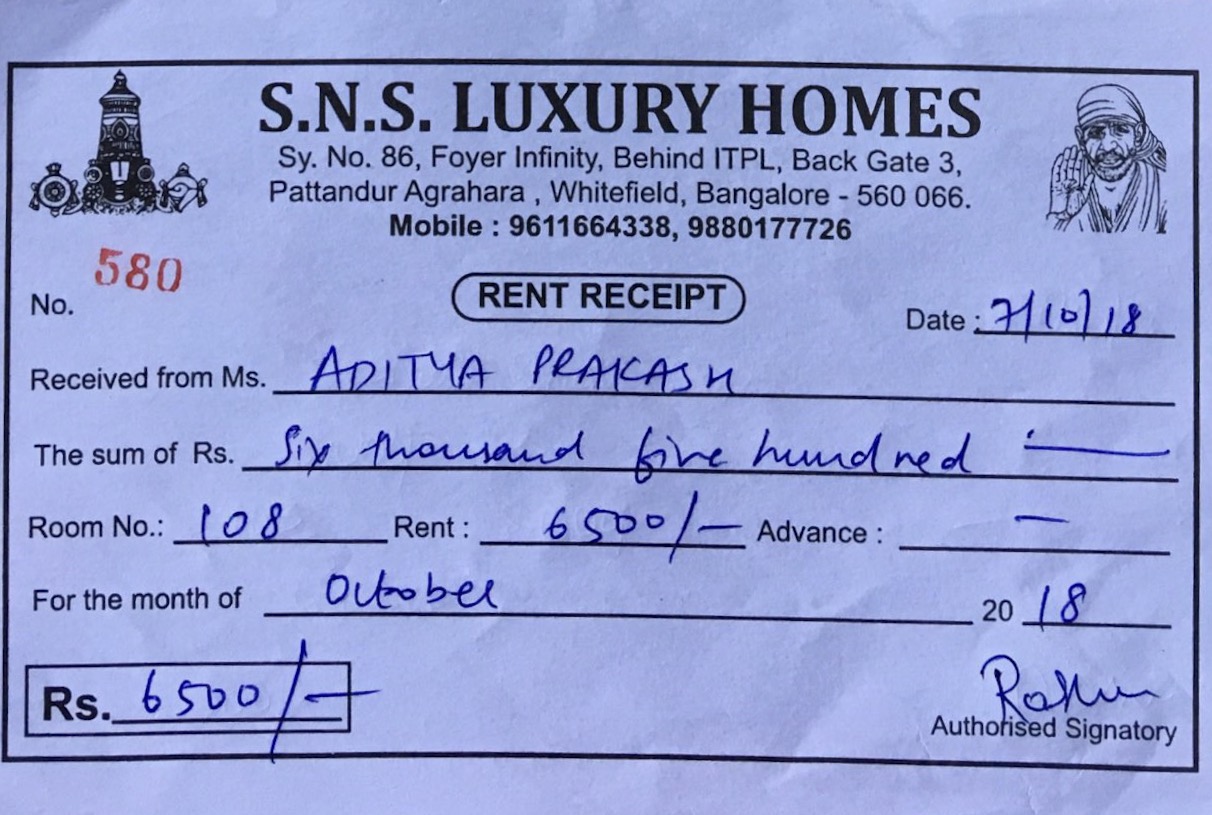 S.N.S. LUXURY HOMES
Sy. No. 86, Foyer Infinity, Behind ITPL, Back Gate 3,
Pattandur Agrahara , Whitefield, Bangalore - 560 066.
Mobile : 9611664338, 9880177726
No. 580
RENT RECEIPT
Date : 7/10/18
Received from Ms. ADITYA PRAKASH
The sum of Rs. Six thousand five hundred
Room No.: 108 Rent : 6500/- Advance : -
For the month of October 2018
Rs. 6500/-
Authorised Signatory